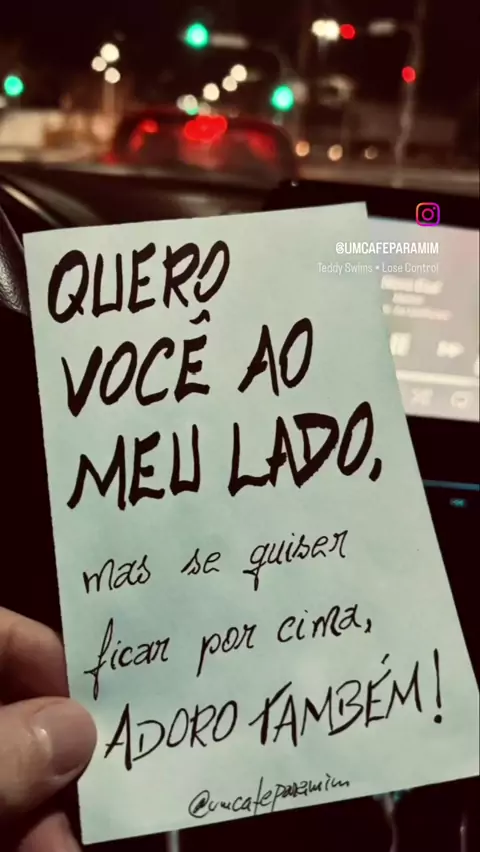 @UMCAFEPARAMIM
Teddy Swims • Lose Control
QUERO
VOCÊ AO
MEU LADO,
mas se quiser
ficar por cima,
ADORO TAMBÉM!
@umcafeparamim